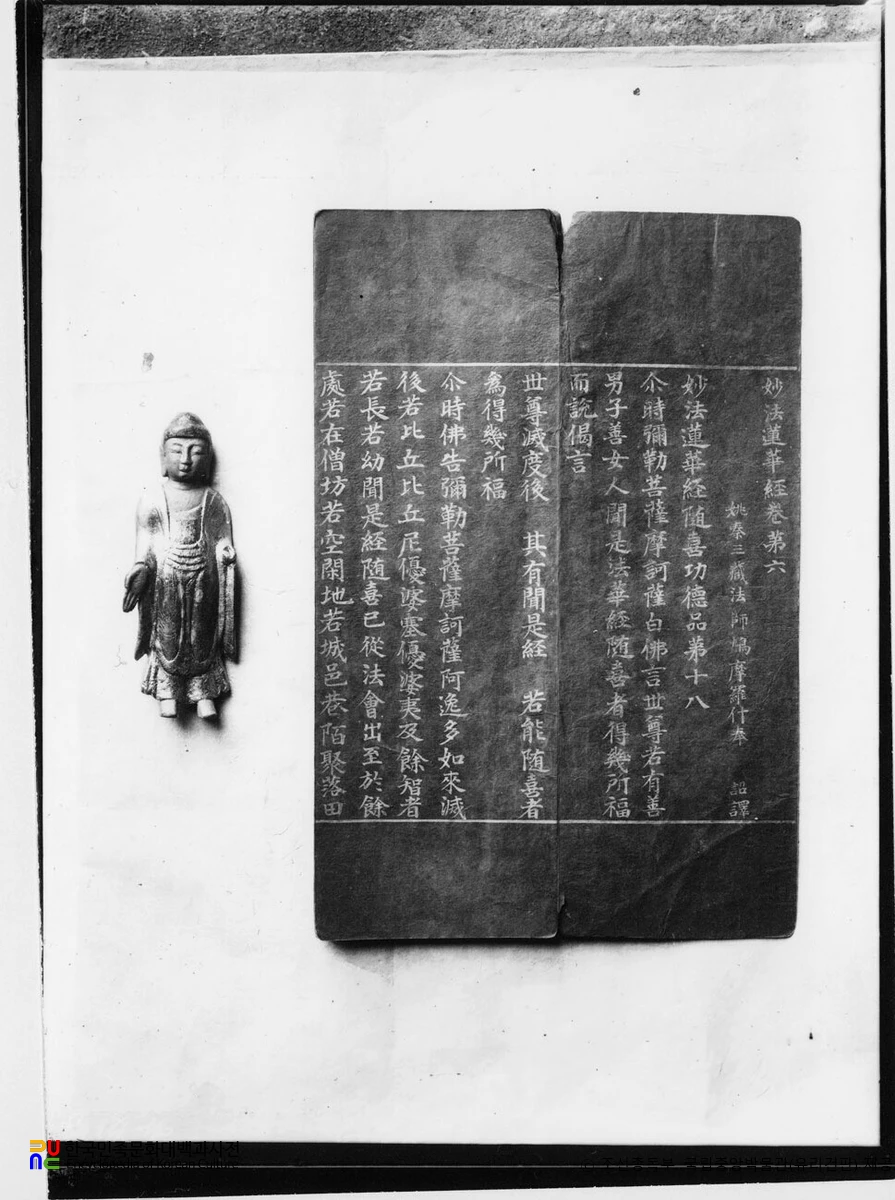 妙法蓮華經卷第六
姚秦三藏法師鳩摩羅什奉 詔譯
妙法蓮華經随喜功德品第十八
尒時彌勒菩薩摩訶薩白佛言世尊若有善
男子善女人聞是法華經随喜者得幾所福
而說偈言
世尊滅度後 其有聞是經 若能随喜者
爲得幾所福
尒時佛告彌勒菩薩摩訶薩阿逸多如來滅
後若比丘比丘尼優婆塞優婆夷及餘智者
若長若幼聞是經随喜已從法會出至於餘
處若在僧坊若空閑地若城邑巷陌聚落田
한국민족문화대백과사전